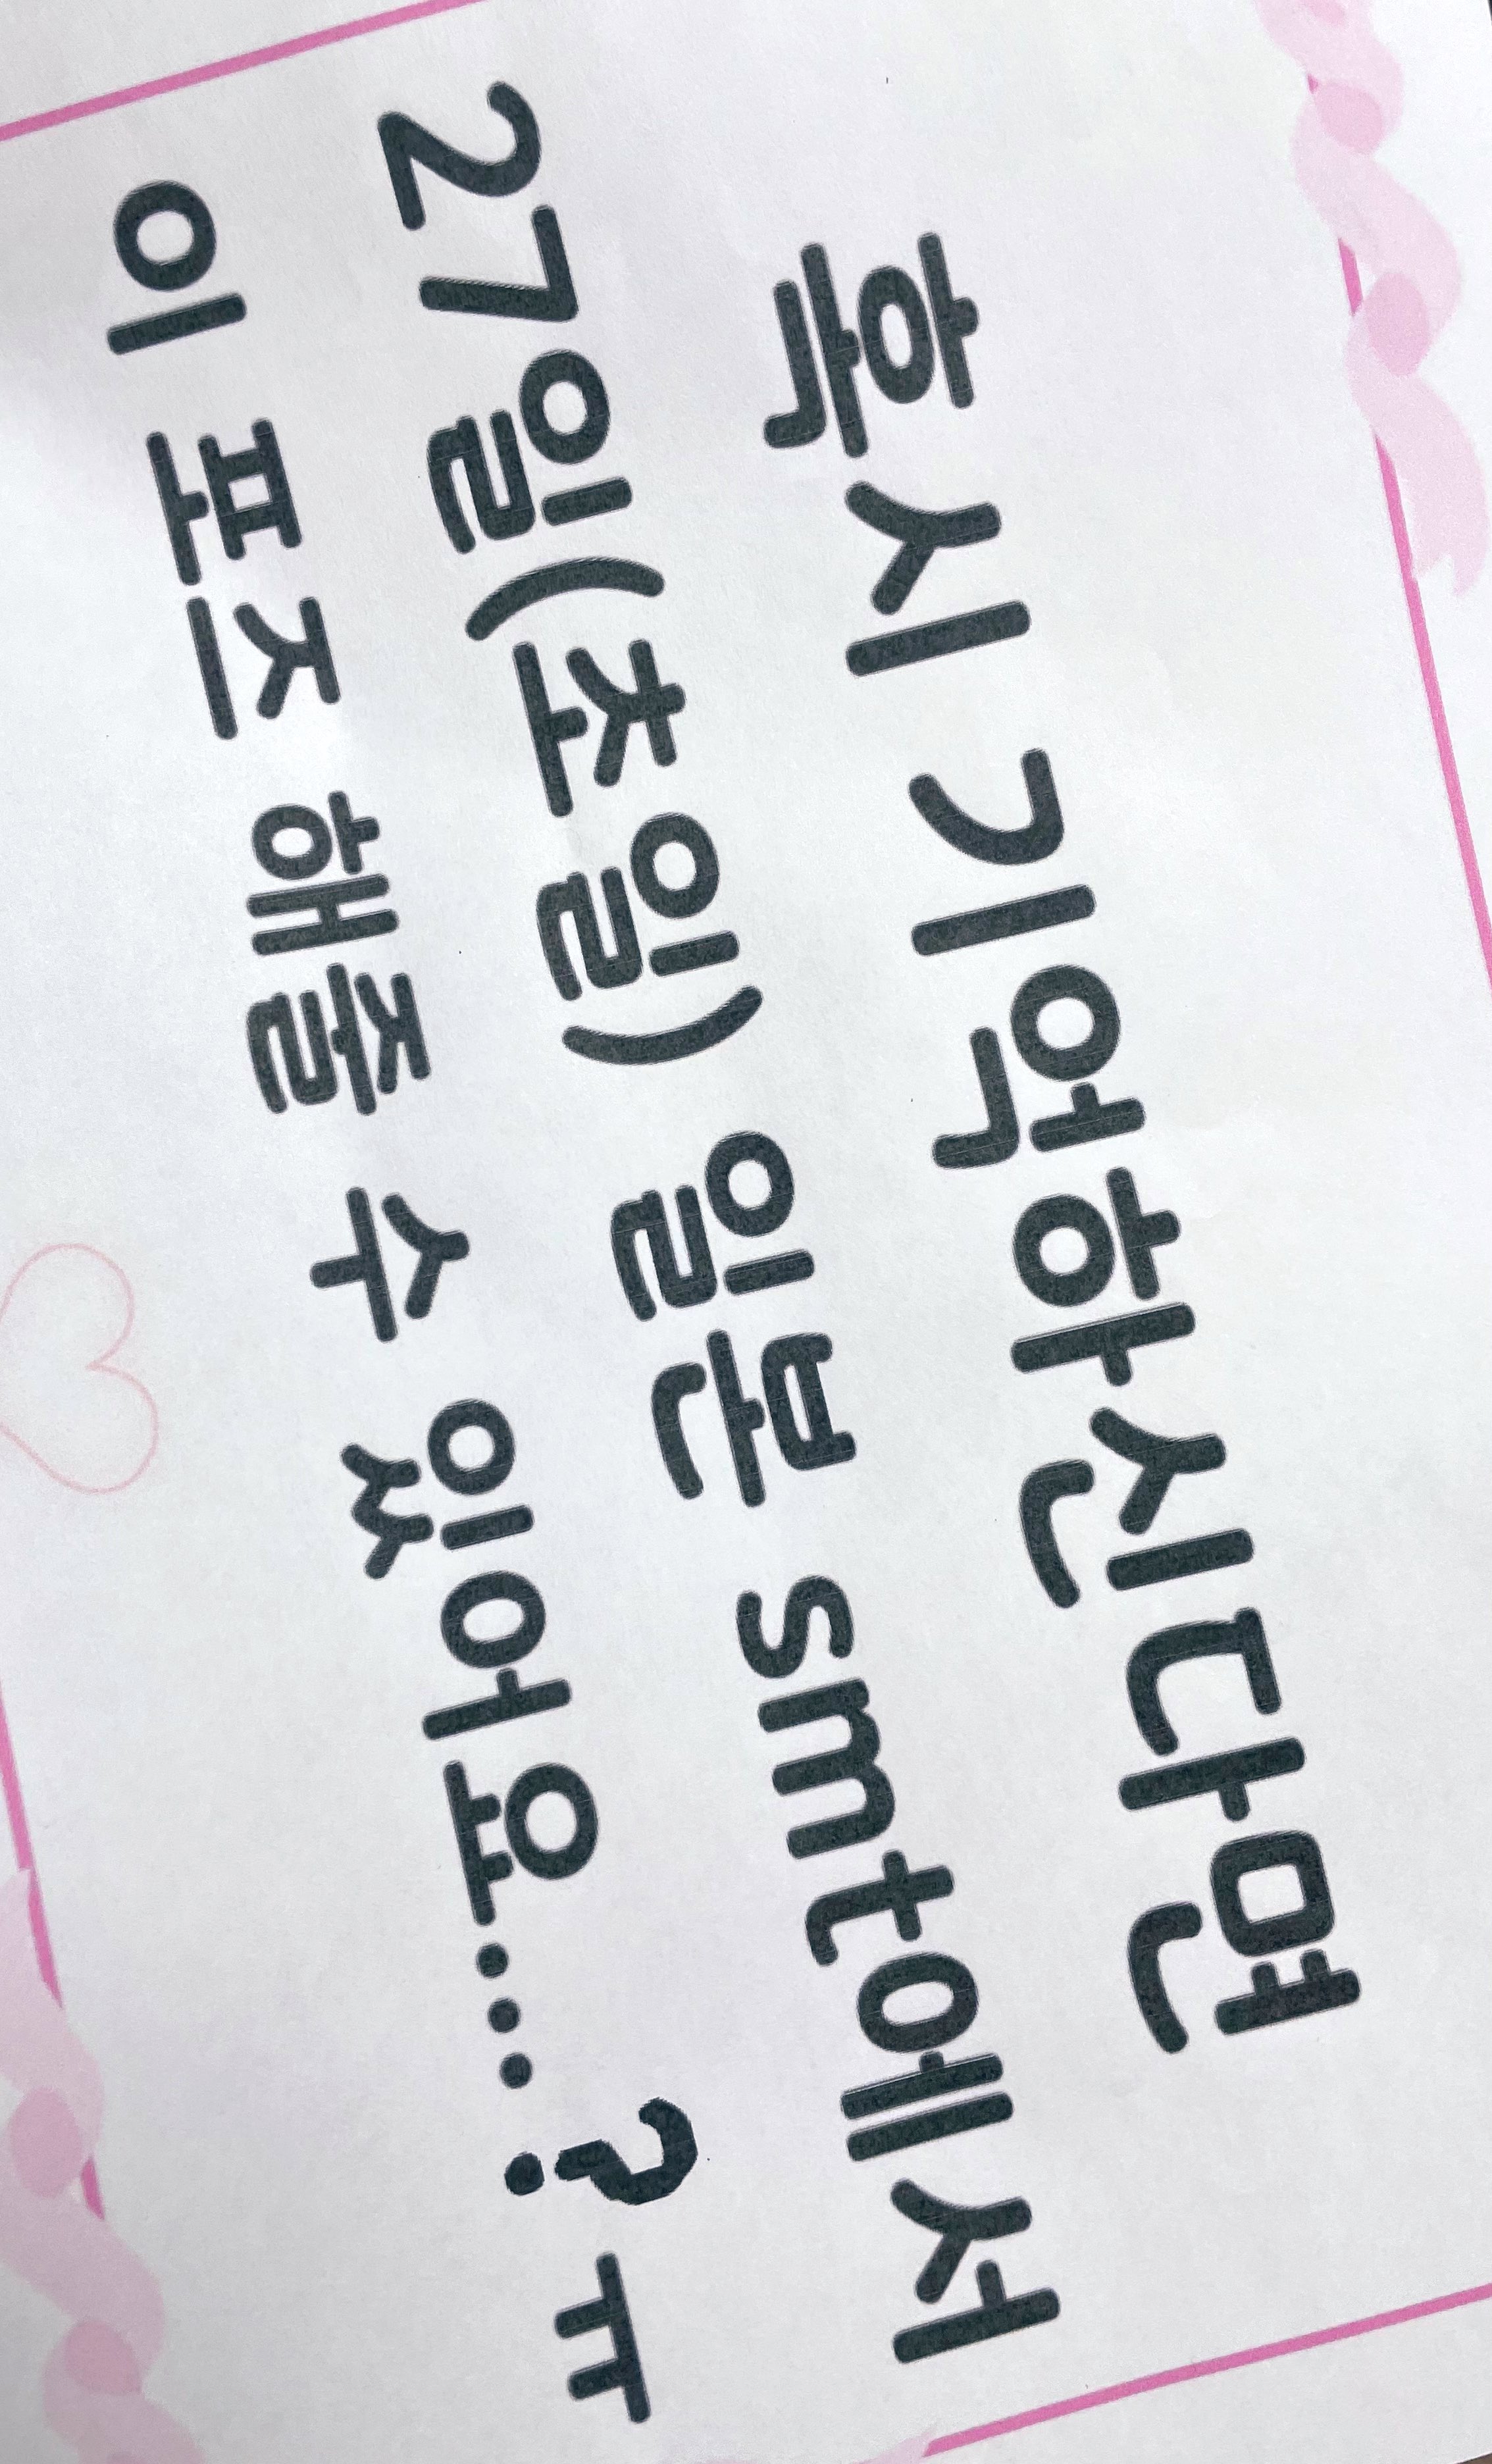 혹시 기억하신다면
27일(초일) 일본 smt에서
이 포즈 해줄 수 있어요...? ㅠ